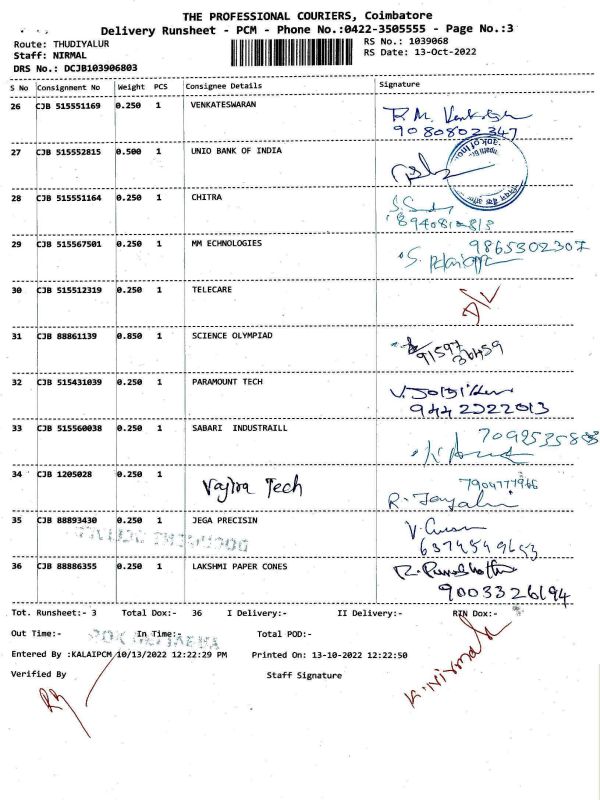 THE PROFESSIONAL COURIERS, Coimbatore
Delivery Runsheet - PCM - Phone No.:0422-3505555 - Page No.:3
Route: THUDIYALUR
Staff: NIRMAL
DRS No.: DCJB103906803
RS No.: 1039068
RS Date: 13-Oct-2022
S No Consignment No Weight PCS Consignee Details Signature
26 CJB 515551169 0.250 1 VENKATESWARAN
9080802347
27 CJB 515552815 0.500 1 UNIO BANK OF INDIA
28 CJB 515551164 0.250 1 CHITRA
29 CJB 515567501 0.250 1 MM ECHNOLOGIES 9865302307
30 CJB 515512319 0.250 1 TELECARE D/L
31 CJB 88861139 0.850 1 SCIENCE OLYMPIAD
91597
36459
32 CJB 515431039 0.250 1 PARAMOUNT TECH
9442322013
33 CJB 515560038 0.250 1 SABARI INDUSTRAILL
34 CJB 1205028 0.250 1 Vajra Tech 7904777966
35 CJB 88893430 0.250 1 JEGA PRECISIN
6374549653
36 CJB 88886355 0.250 1 LAKSHMI PAPER CONES
9003326194
Tot. Runsheet:- 3 Total Dox:- 36 I Delivery:- II Delivery:- RTN Dox:-
Out Time:- In Time:- Total POD:-
Entered By :KALAIPCM 10/13/2022 12:22:29 PM Printed On: 13-10-2022 12:22:50
Verified By Staff Signature
K. Nirmal